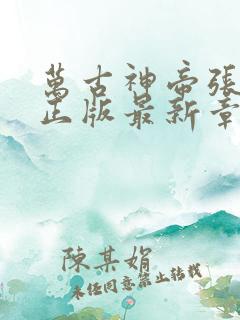 萬古神帝張
正版最新章
陳某娟
未经同意禁止转载